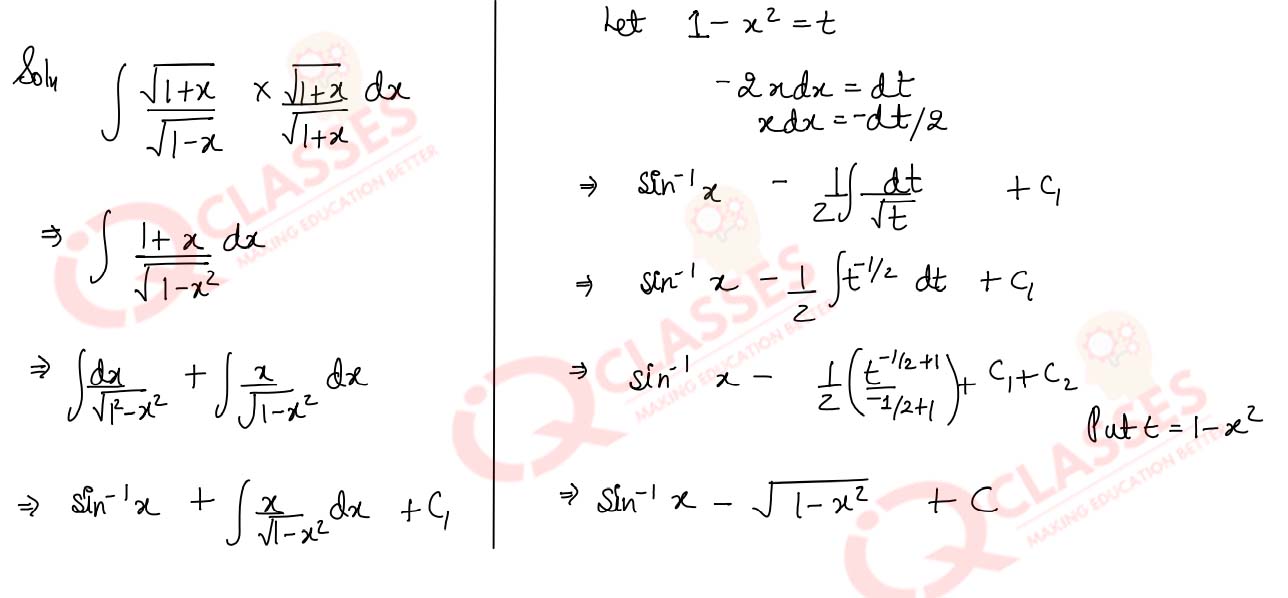 Soln ∫ √(1+x)/√(1-x) × √(1+x)/√(1+x) dx
⇒ ∫ (1+x)/√(1-x²) dx
⇒ ∫ dx/√(1²-x²) + ∫ x/√(1-x²) dx
⇒ sin⁻¹x + ∫ x/√(1-x²) dx + C₁
Let 1-x² = t
-2xdx = dt
xdx = -dt/2
⇒ sin⁻¹x - 1/2 ∫ dt/√t + C₁
⇒ sin⁻¹x - 1/2 ∫ t^(-1/2) dt + C₁
⇒ sin⁻¹ x - 1/2 (t^(-1/2+1)/(-1/2+1)) + C₁+C₂
Put t = 1-x²
⇒ sin⁻¹x - √(1-x²) + C
iQ CLASSES
MAKING EDUCATION BETTER
iQ CLASSES
MAKING EDUCATION BETTER
iQ CLASSES
MAKING EDUCATION BETTER